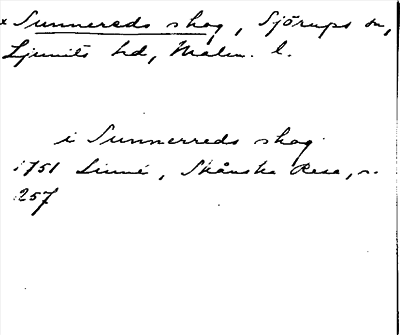 x Sunnereds skog, Sjörups sn,
Ljunits hd, Malm. l.
i Sunnerreds skog
1751 Linné, Skånska Resa, s.
257